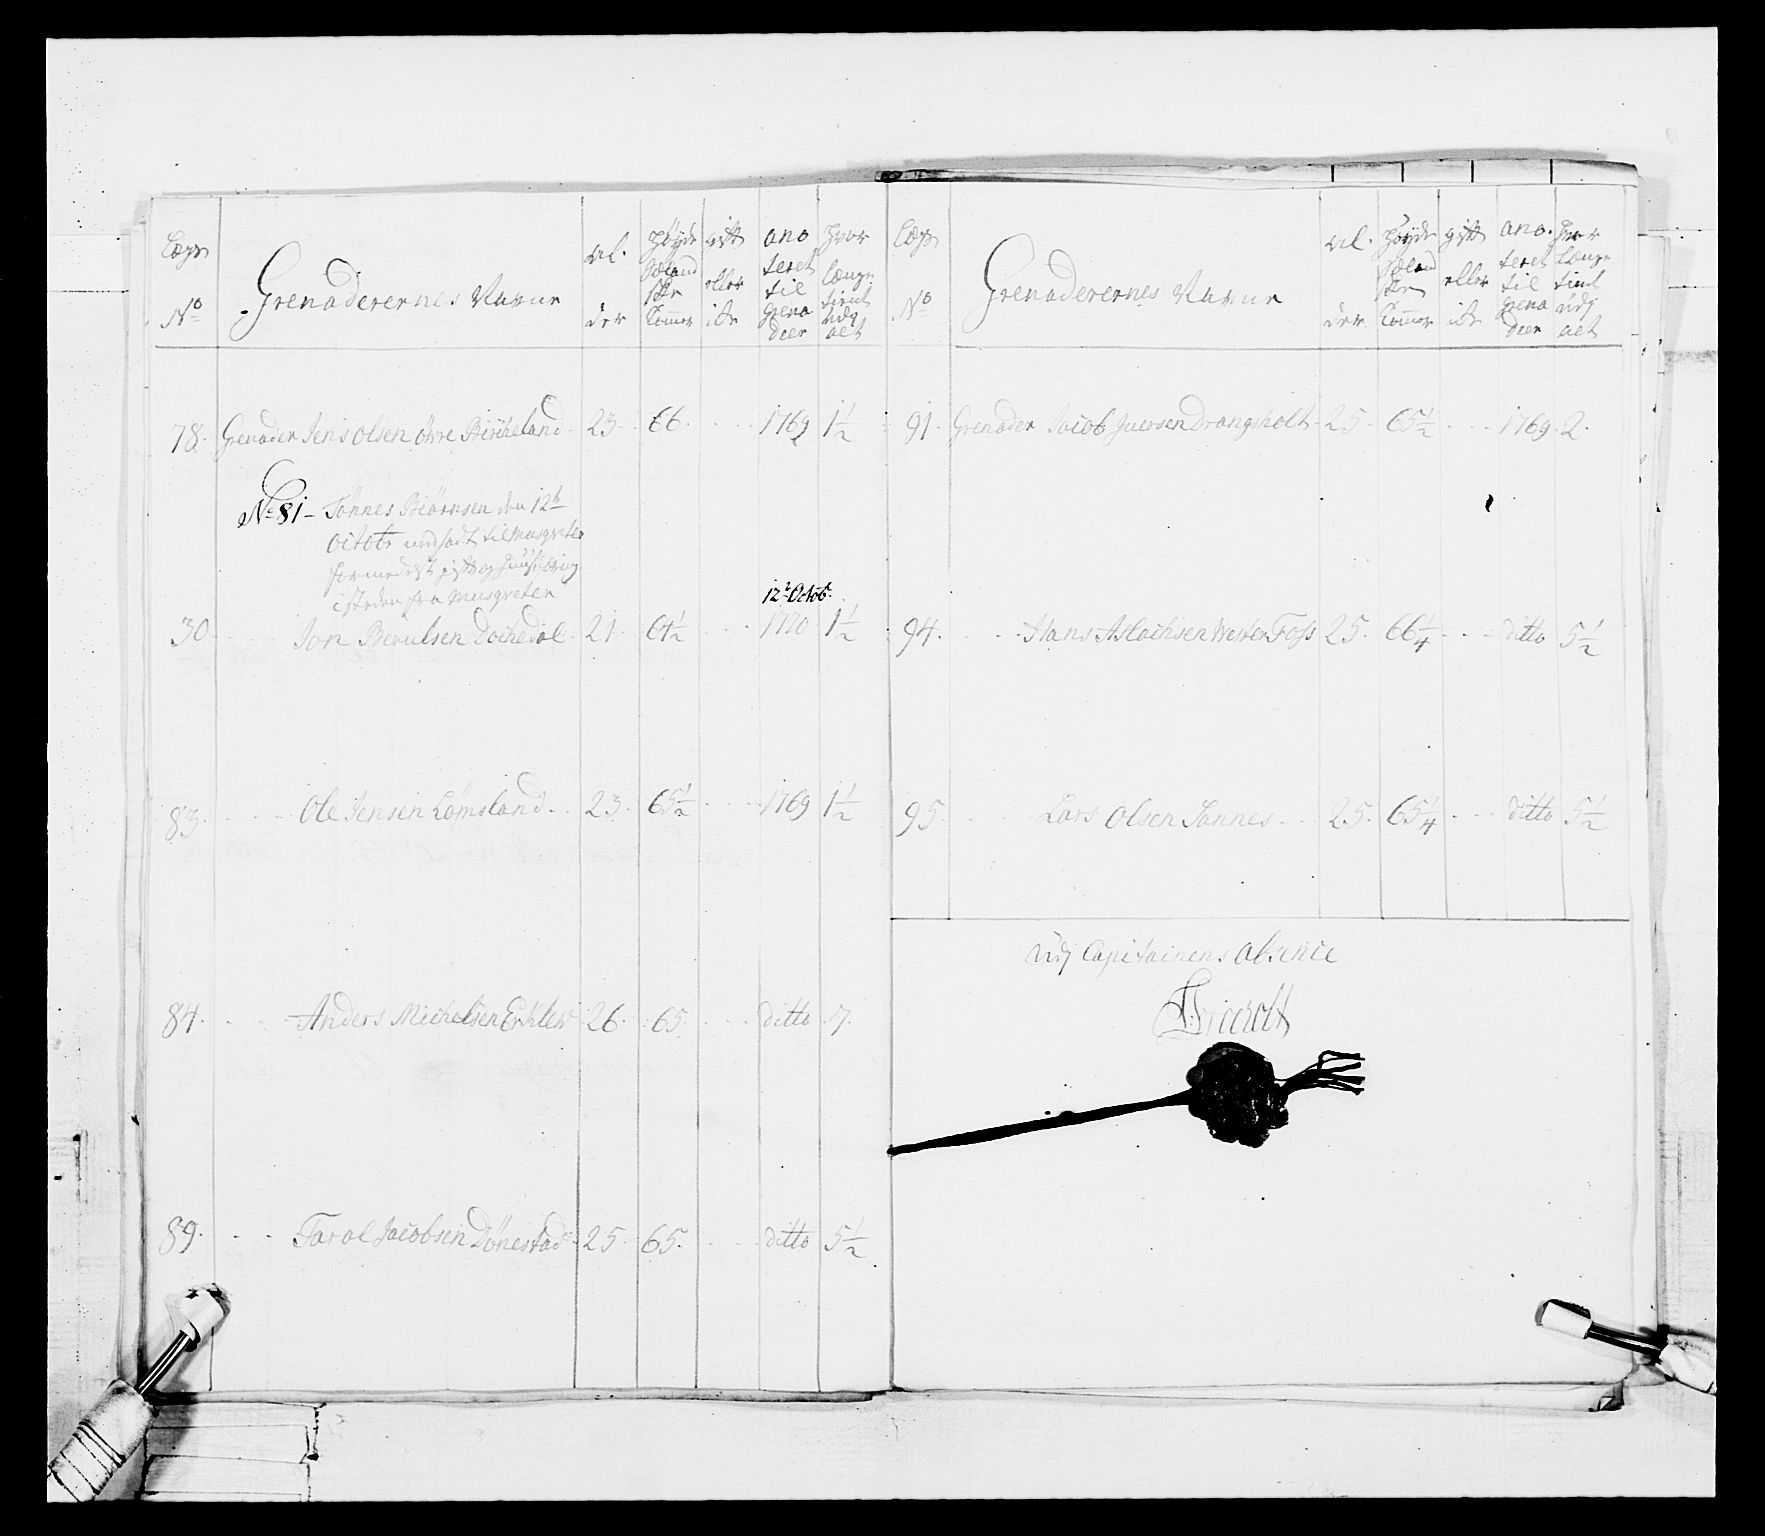 Lægs No
Grenaderernes Navne
al. der
Høyde Siæland ske Tommer
gift eller icke
ano teret til grena deer
hvor længe tient udj alt
78. Grenader Jens Olsen Øvre Birckeland 23. 66. 1769 1½
No 81 - Tønnes Biørnsen den 12te
Octobr nedsadt til Musqveter
formedelst gift og
isteden fra Musqveter
12te Octob:
30 Jon Berulsen Dochedal 21. 64½ 1770 1½
83. Ole Jensen Lømsland 23. 65½ 1769 1½
84. Anders Michelsen Ercklev 26. 65 ditto 7.
89. Tarol Jacobsen Dønestad 25. 65. ditto 5½
Lægs No
Grenaderernes Navne
al. der
Høyde Siæland ske Tommer
gift eller icke
ano. teret til grena deer
hvor længe tient udj alt
91. Grenader Jacob Juersen Drangsholt 25. 65½ 1769. 2.
94. Hans Aslachsen Wester Foss 25. 66¼ ditto 5½
95. Lars Olsen Sannes 25. 65¼ ditto 5½
Udj Capitainens absence